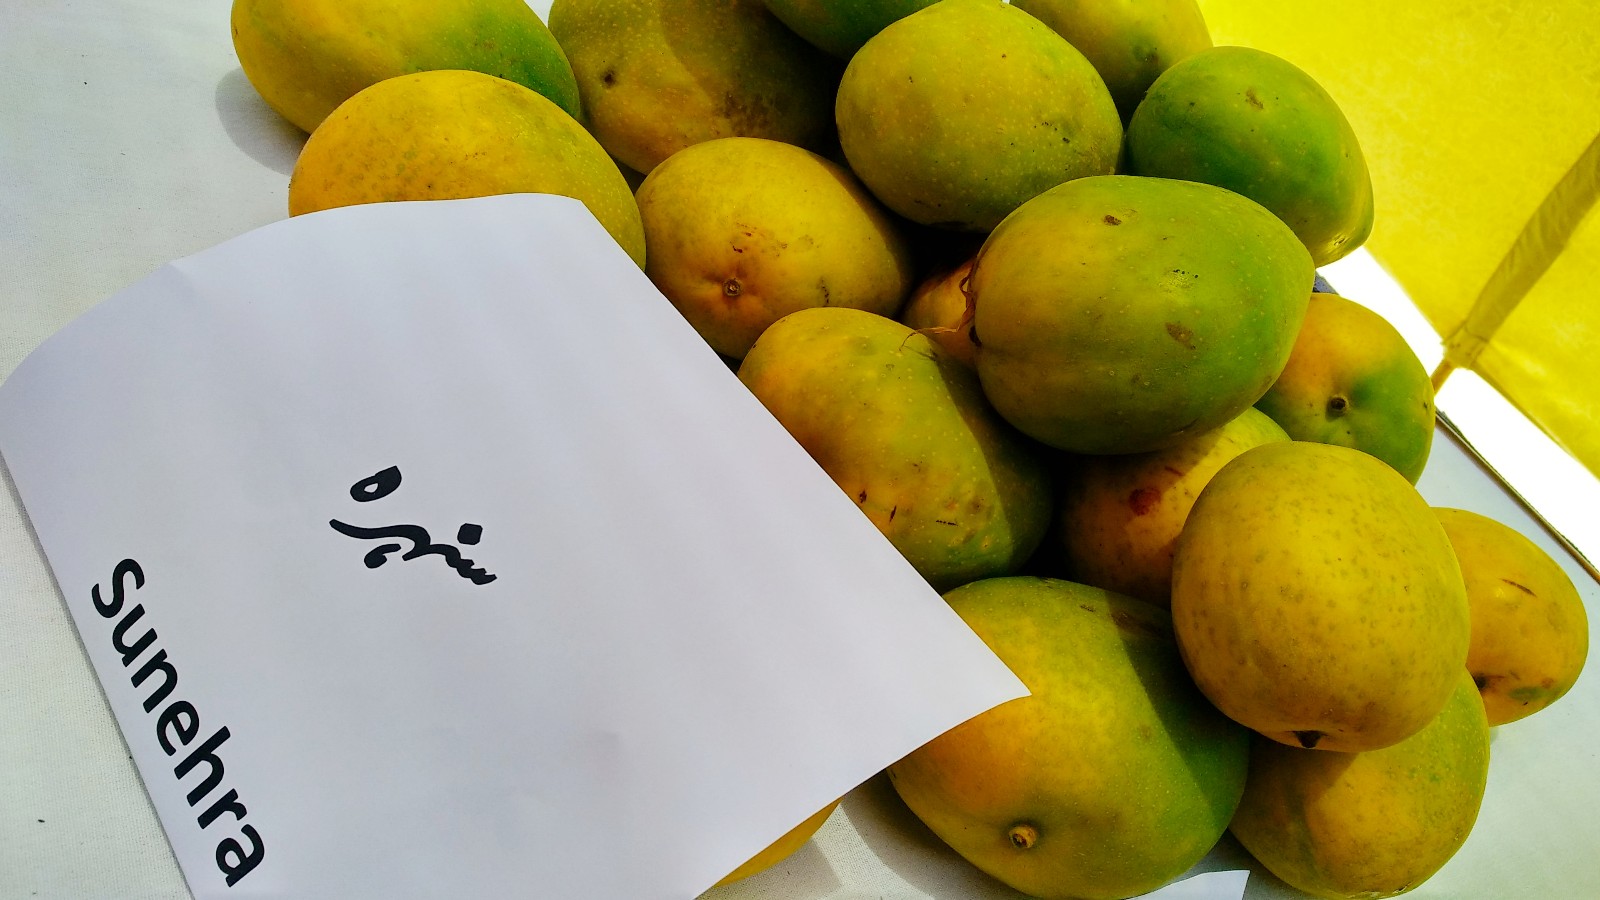 سنہرہ
Sunehra